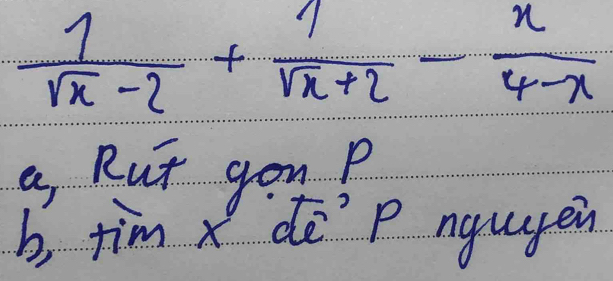 1/(√x - 2) + 1/(√x + 2) - x/(4 - x)
a, Rút gọn P
b, tìm x để P nguyên